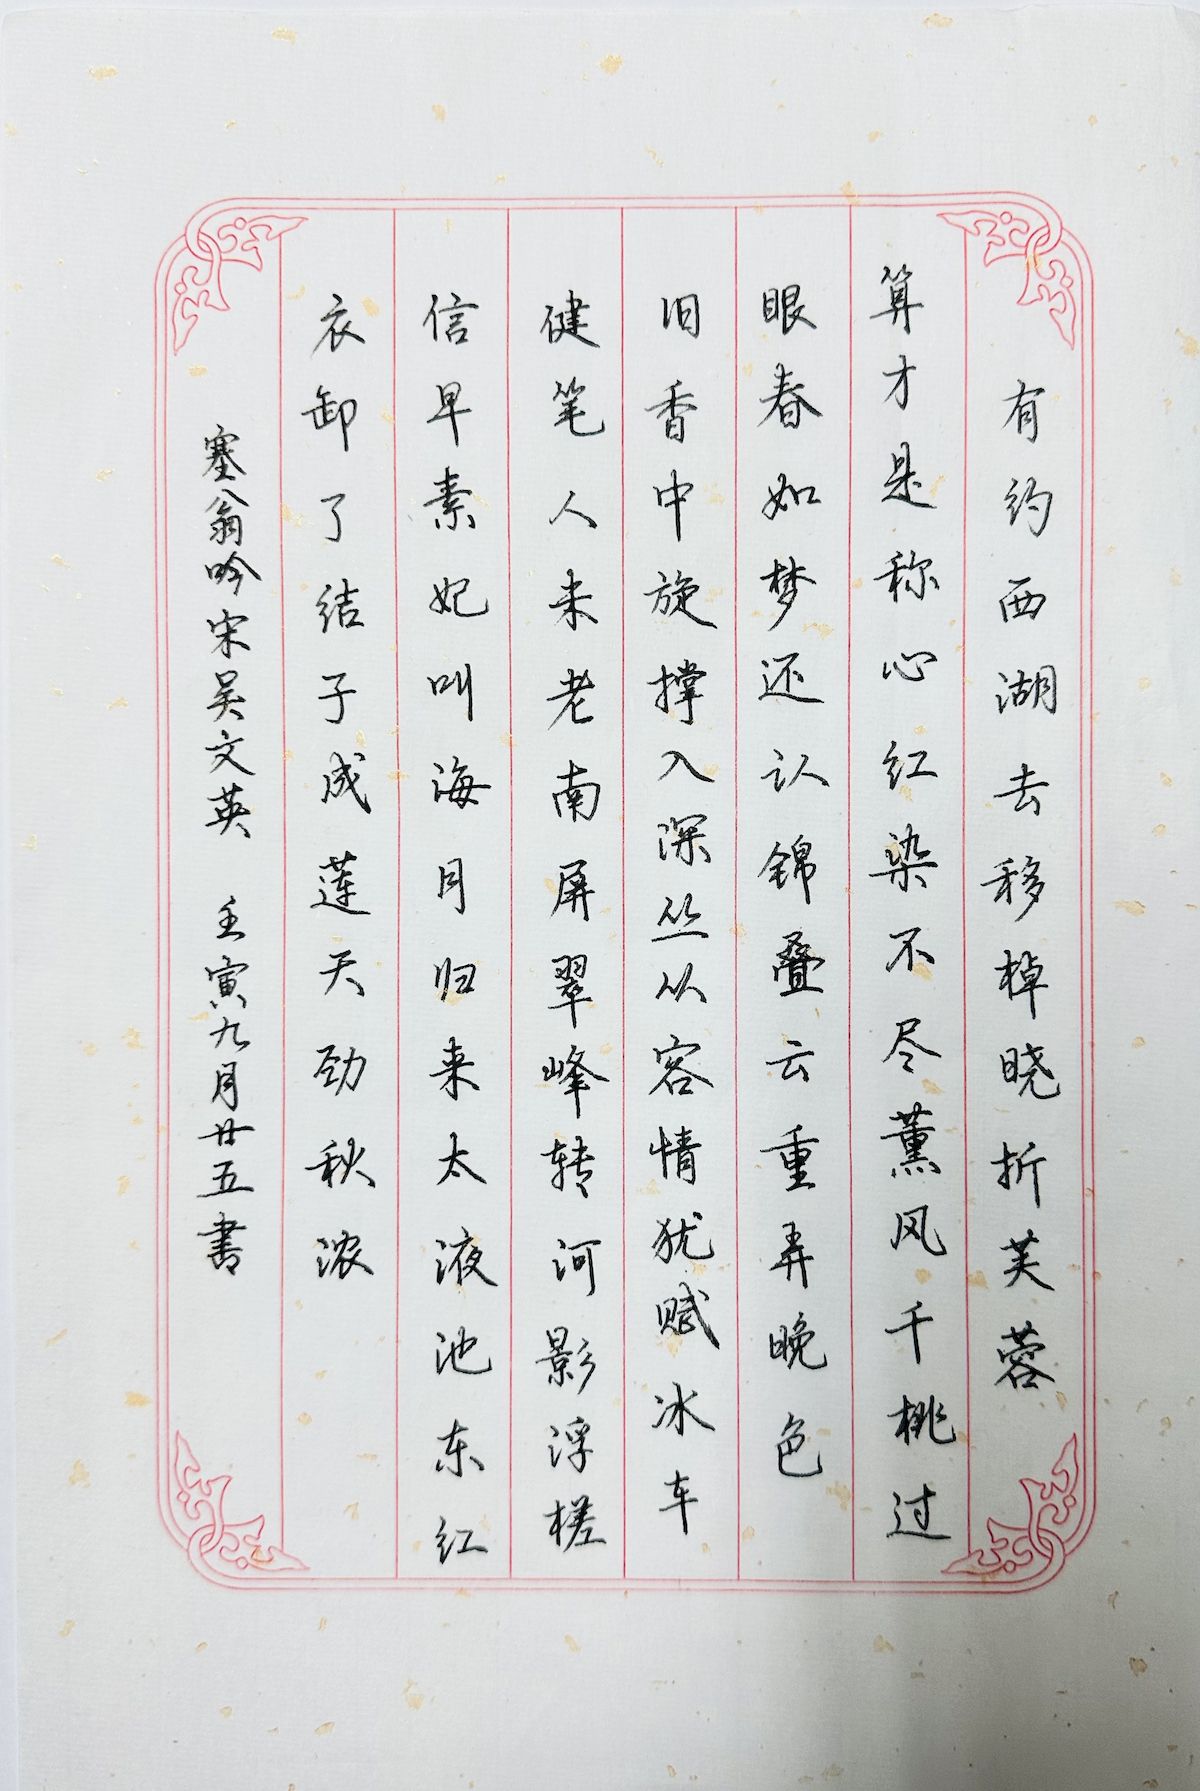 有约西湖去移棹晓折芙蓉
算才是称心红染不尽薰风千桃过
眼春如梦还认锦叠云重弄晚色
旧香中旋撑入深丛从容情犹赋冰车
健笔人未老南屏翠峰转河影浮槎
信早素妃叫海月归来太液池东红
衣卸了结子成莲天劲秋浓
塞翁吟宋吴文英 壬寅九月廿五書